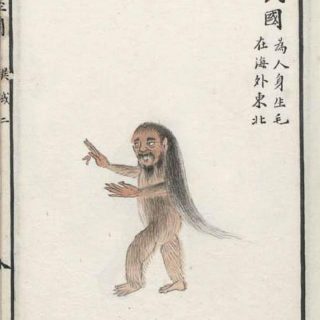 國
為人身生毛
在海外東北
異域二